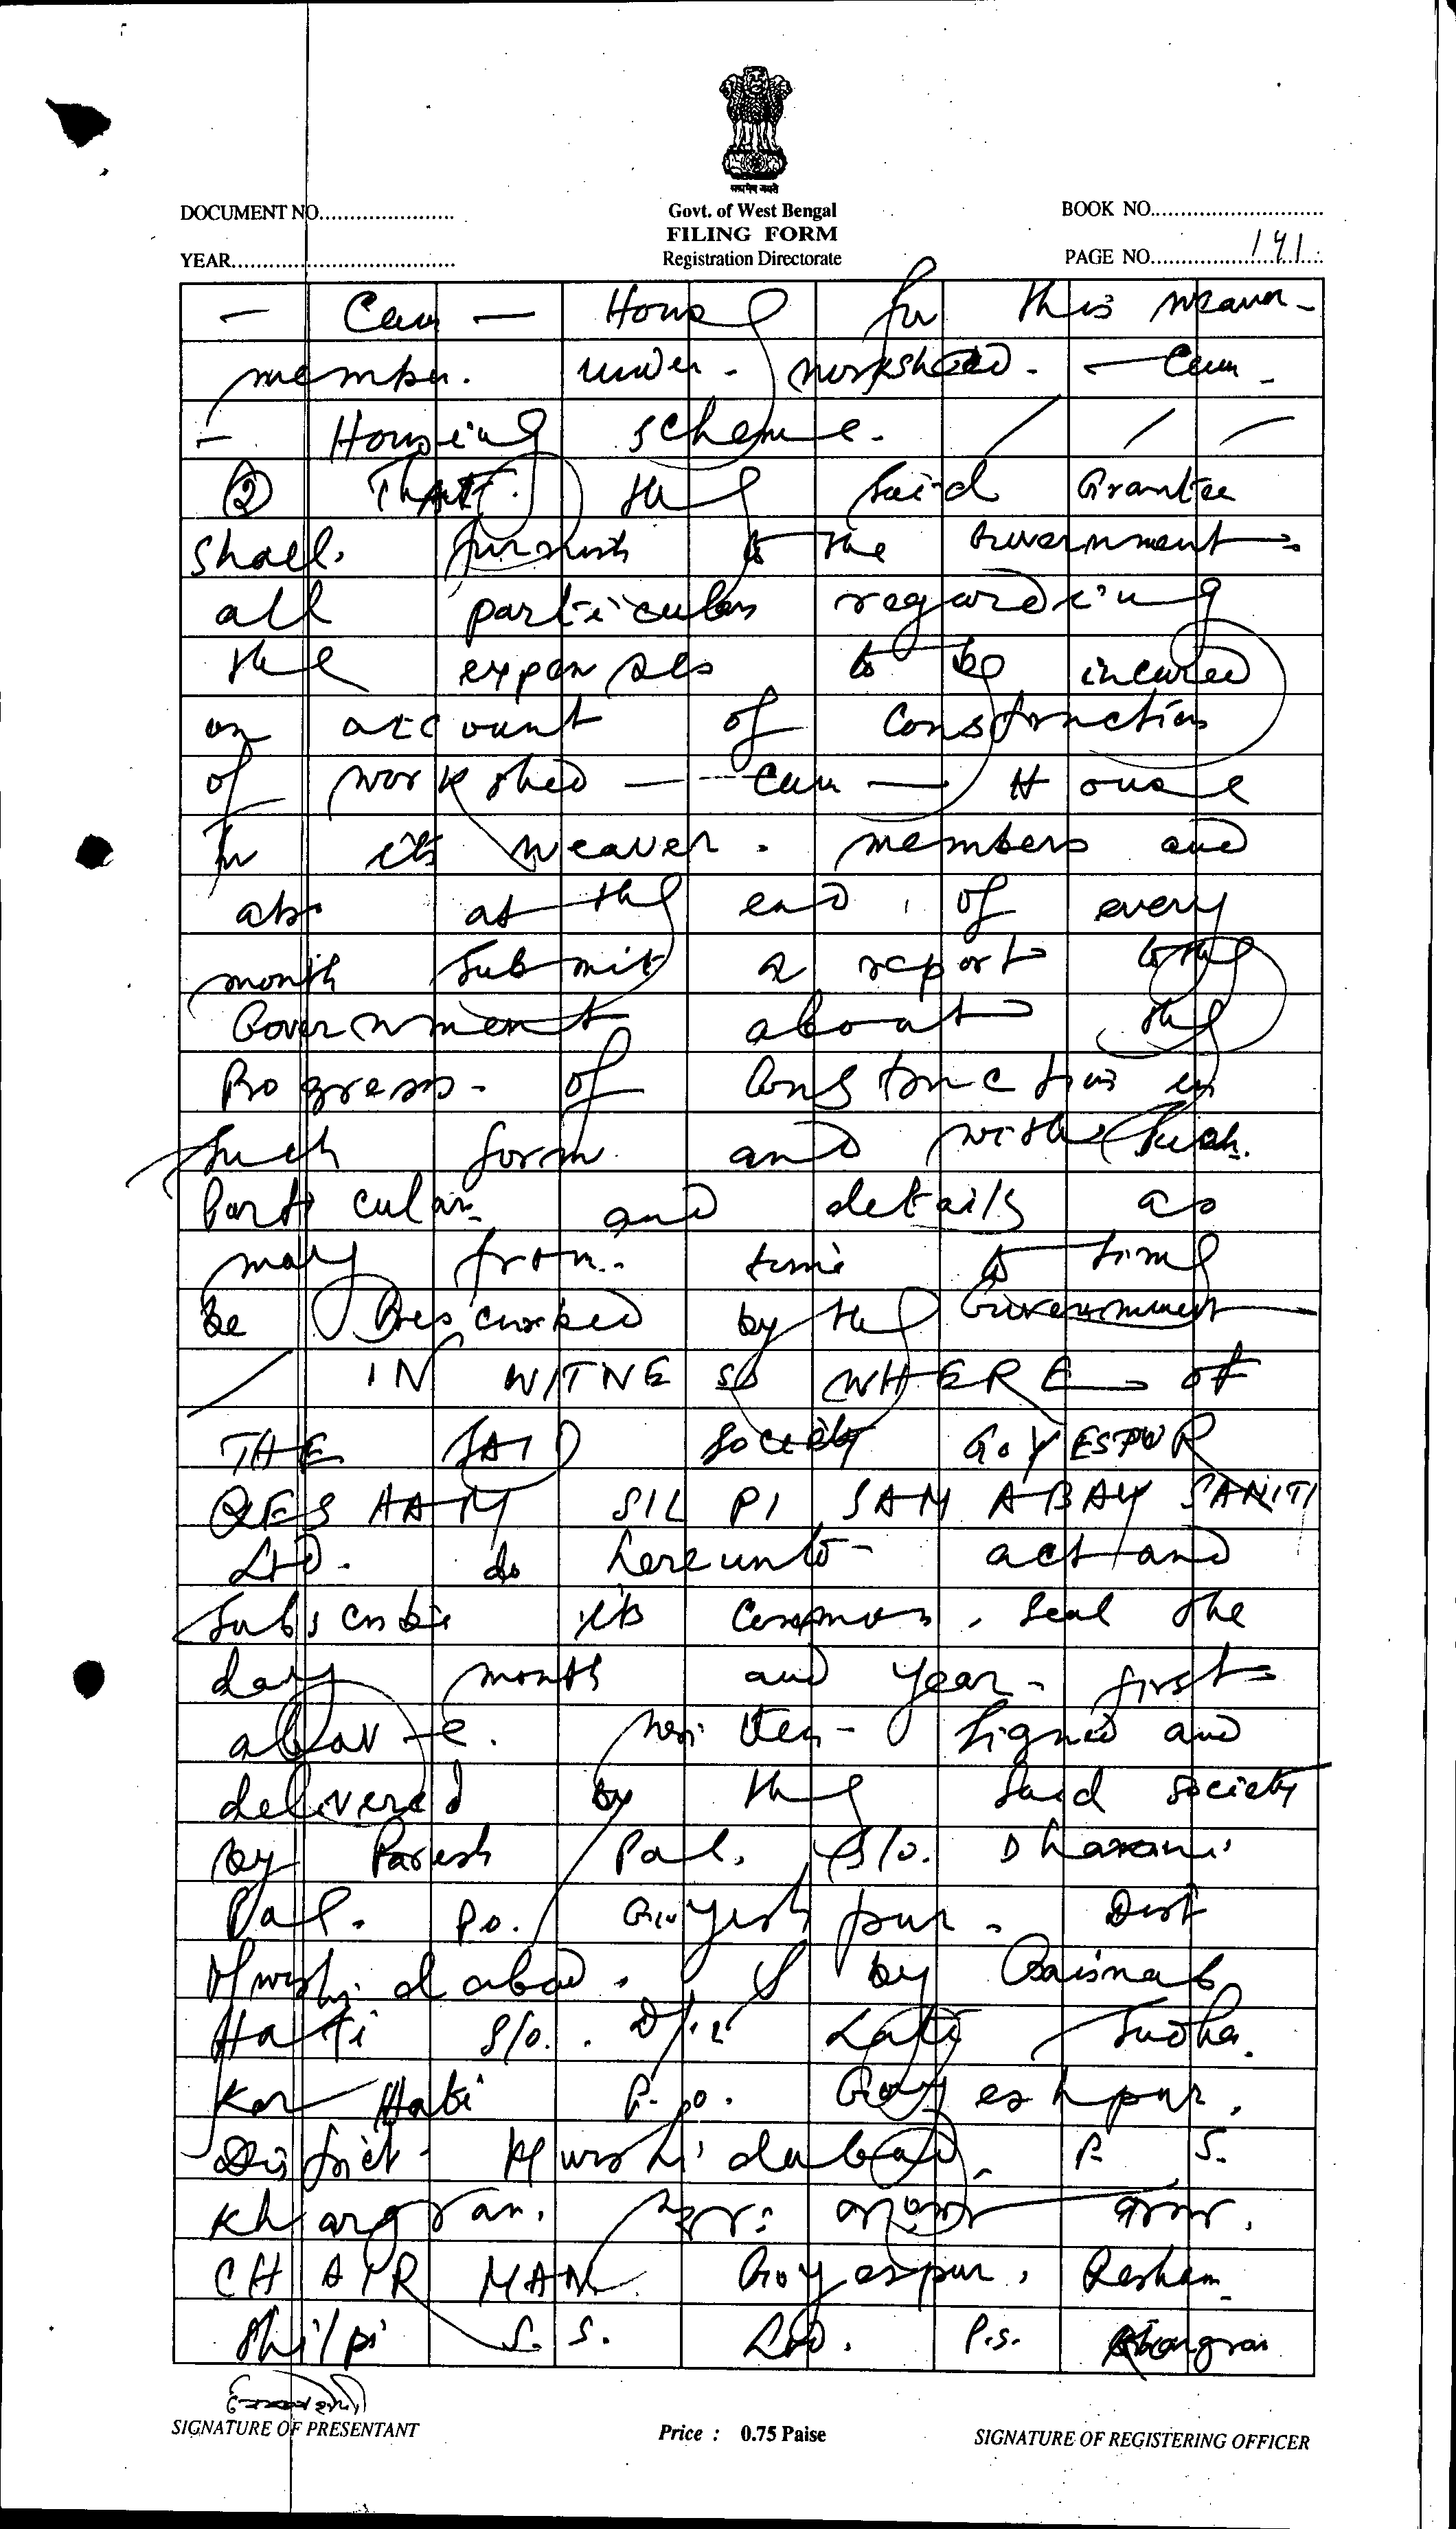 सत्यमेव जयते
DOCUMENT NO......................
Govt. of West Bengal
BOOK NO............................
FILING FORM
YEAR.....................................
Registration Directorate
PAGE NO.................191......
- Cum - House for this weaver-
member. under. workshed. - Cum -
- Housing scheme. / / /
② That. the said Grantee
shall. furnish to the Government
all particulars regarding
the expenses to be incured
on account of Construction
of workshed - Cum - House
for its weaver. members and
also at the end of every
month Submit a report to the
Government about the
Progress. of Construction in
such form and with such.
Particulars and details as
may from.. time to time
be Prescribed by the Government
/ IN WITNESS WHERE of
THE SAID Society GOYESPUR
RESHAM SILPI SAMABAY SAMITI
LTD. do hereunto- act and
Subscribe its Common. Seal the
day month and year- first
above. written- Signed and
delivered by the said society
by Paresh Pal. S/o. Dharani
Pal. Po. Goyeshpur. Dist
Murshidabad. & by Baisnab
Hati S/o. Late Sudha.
Kar Hati P.o. Goyeshpur.
District- Murshidabad. P. S.
Khargram.
CHAIRMAN Goyespur. Resham
Shilpi S. S. Ltd. P.s. Khargram
SIGNATURE OF PRESENTANT
Price : 0.75 Paise
SIGNATURE OF REGISTERING OFFICER